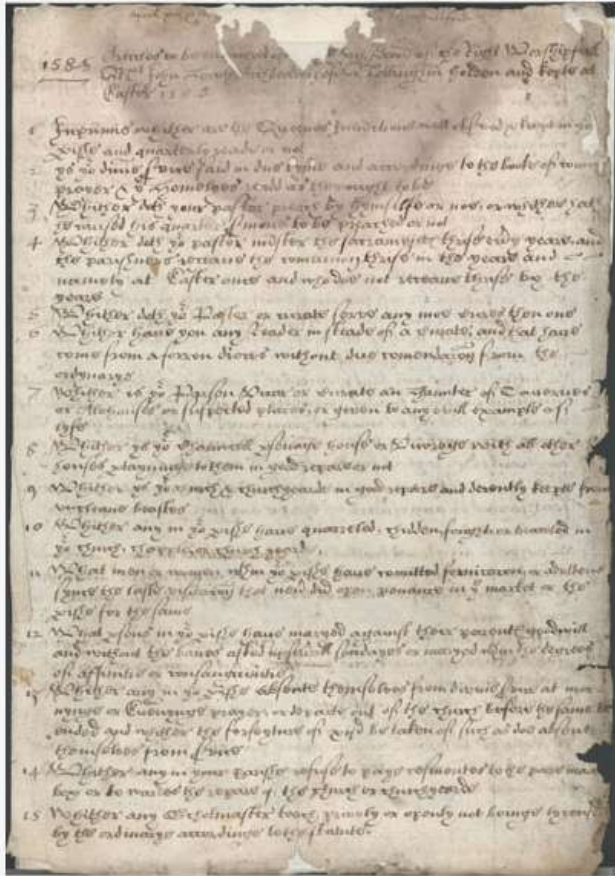 1585 Articles to be of the Right Worshipfull
John holden and kepte at
Easter 1585
1 Inprimis whither are the Quenes Iniunctions well observed & kept in yor
p'ishe and quarterly reade or not
2 ys yor divine s'vice said in due tyme and accordinge to the booke of comon
prayer & ye Homelies redd as they ought to be
3 Whither doth your pastor preach by himselfe or noe, or whither hath
he caused his quarter s'mons to be preached or not
4 Whither doth yor pastor minister the sacraments thrise every yeare, and
the parishners receave the comunion thrise in the yeare and
namely at Easter once and who doe not receave thrise by the
yeare
5 Whither doth yor Pastor or curate serve any moe cures then one
6 Whither have you any Reader in steade of a curate, and that have
come from a forren dioces without due comendacon from the
ordynarye
7 Whither is yor Parson Vicar or curate an Haunter of Tavernes
or Alehouses or suspected places, or given to any evill example of
lyfe
8 Whither ys yor Chauncell p'sonage house or Vicarage with all other
houses p'tayninge to them in good repaire or not
9 Whither ys yor church & churchyarde in good repaire and decently kepte from
beastes
10 Whither any in yor p'ishe have quarreled, chidden, fought or brawled in
yor church, or church yeard.
11 What men or women wthin yor p'ishe have comitted fornicacon or adulterie
synce the laste visitacon that never did open penance in ye market or the
p'ishe for the same
12 What p'sons in yor p'ishe have maryed against their parents goodwill
and without the banes asked severall sondayes or maryed wthin the degrees
of affinitie or consanguinitie
13 Whither any in yor p'ishe absente themselves from divine s'vice at mor
nynge or Evenynge prayer, or departe out of the church before the same be
ended and whither the forfeyture of xijd be taken of such as doe absent
themselves from s'vice
14 Whither any in your Parishe refuse to paye to the pore mans
box or to wardes the repaire of the church or churchyarde
15 Whither any Scholmaster teach privily or openly not beinge lycensed
by the ordinarye accordinge to the statute.